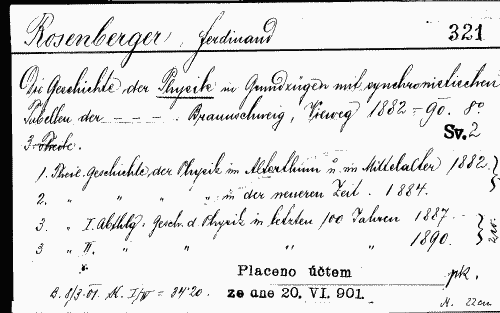 Rosenberger, Ferdinand 321
Die Geschichte der Physik in Grundzügen mit synchronistischen
Tabellen der _ _ _ _ Braunschweig, Vieweg 1882-90. 8°
Sv. 2
3 Theile.
1. Theil. Geschichte der Physik im Alterthum u. im Mittelalter 1882.
2. " " " " in der neueren Zeit. 1884.
3. " I. Abthlg. Gesch. d. Physik in letzten 100 Jahren 1887.
3 " II. " " " " 1890.
Placeno účtem pk.
B. 8/3 01. M. I/IV = 34·20. ze dne 20. VI. 901. M. 22cm